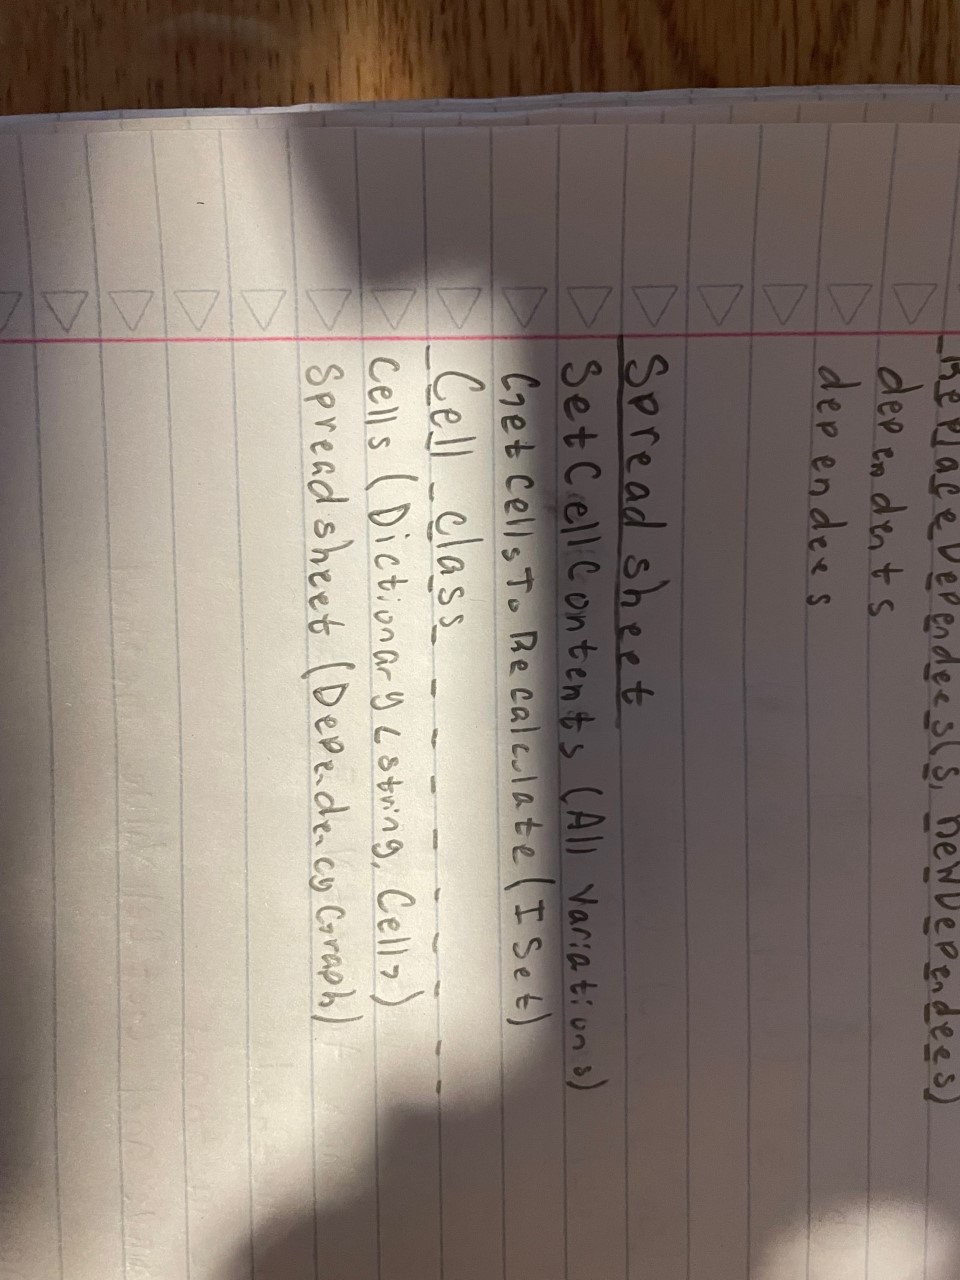 ReplaceDependees(s, newDependees)
dependents
dependees
Spreadsheet
SetCellContents (All variations)
GetCellsToRecalculate (ISet)
Cell class
Cells (Dictionary<string, Cell>)
Spreadsheet (DependencyGraph)